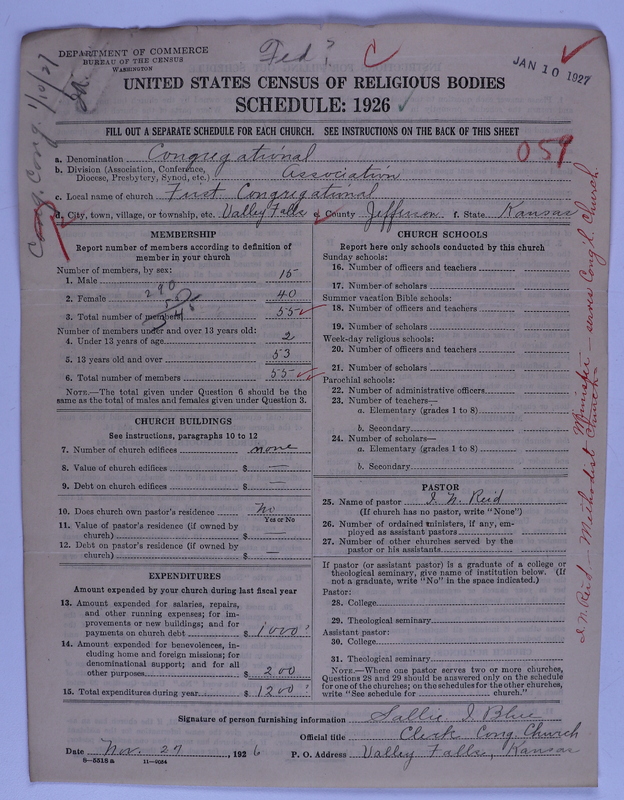 DEPARTMENT OF COMMERCE
BUREAU OF THE CENSUS
WASHINGTON
Fed? C
JAN 10 1927
Cong. Cong. 1/10/27
UNITED STATES CENSUS OF RELIGIOUS BODIES
SCHEDULE: 1926
FILL OUT A SEPARATE SCHEDULE FOR EACH CHURCH. SEE INSTRUCTIONS ON THE BACK OF THIS SHEET
a. Denomination Congregational 059
b. Division (Association, Conference, Diocese, Presbytery, Synod, etc.) Association
c. Local name of church First Congregational
d. City, town, village, or township, etc. Valley Falls e. County Jefferson f. State Kansas
MEMBERSHIP
Report number of members according to definition of
member in your church
Number of members, by sex:
1. Male 15
2. Female 40
290
3. Total number of members 55
Number of members under and over 13 years old:
4. Under 13 years of age 2
5. 13 years old and over 53
6. Total number of members 55
NOTE.—The total given under Question 6 should be
the same as the total of males and females given under Question 3.
CHURCH BUILDINGS
See instructions, paragraphs 10 to 12
7. Number of church edifices none
8. Value of church edifices $ —
9. Debt on church edifices $ —
10. Does church own pastor's residence No
Yes or No
11. Value of pastor's residence (if owned by
church) $ —
12. Debt on pastor's residence (if owned by
church) $ —
EXPENDITURES
Amount expended by your church during last fiscal year
13. Amount expended for salaries, repairs,
and other running expenses; for im-
provements or new buildings; and for
payments on church debt $ 1000?
14. Amount expended for benevolences, in-
cluding home and foreign missions; for
denominational support; and for all
other purposes $ 200
15. Total expenditures during year $ 1200?
CHURCH SCHOOLS
Report here only schools conducted by this church
Sunday schools:
16. Number of officers and teachers
17. Number of scholars
Summer vacation Bible schools:
18. Number of officers and teachers
19. Number of scholars
Week-day religious schools:
20. Number of officers and teachers
21. Number of scholars
Parochial schools:
22. Number of administrative officers
23. Number of teachers—
a. Elementary (grades 1 to 8)
b. Secondary
24. Number of scholars—
a. Elementary (grades 1 to 8)
b. Secondary
PASTOR
25. Name of pastor I. N. Reid
(If church has no pastor, write "None")
26. Number of ordained ministers, if any, em-
ployed as assistant pastors
27. Number of other churches served by the
pastor or his assistants
If pastor (or assistant pastor) is a graduate of a college or
theological seminary, give name of institution below. (If
not a graduate, write "No" in the space indicated.)
Pastor:
28. College
29. Theological seminary
Assistant pastor:
30. College
31. Theological seminary
NOTE.—Where one pastor serves two or more churches,
Questions 28 and 29 should be answered only on the schedule
for one of the churches; on the schedules for the other churches,
write "See schedule for church."
I. N. Reid - Methodist Church
Minister - serves Cong'l. Church
Signature of person furnishing information Sallie I. Blue
Official title Clerk Cong. Church
Date Nov. 27, 1926 P. O. Address Valley Falls, Kansas
8—5518 a 11—9034